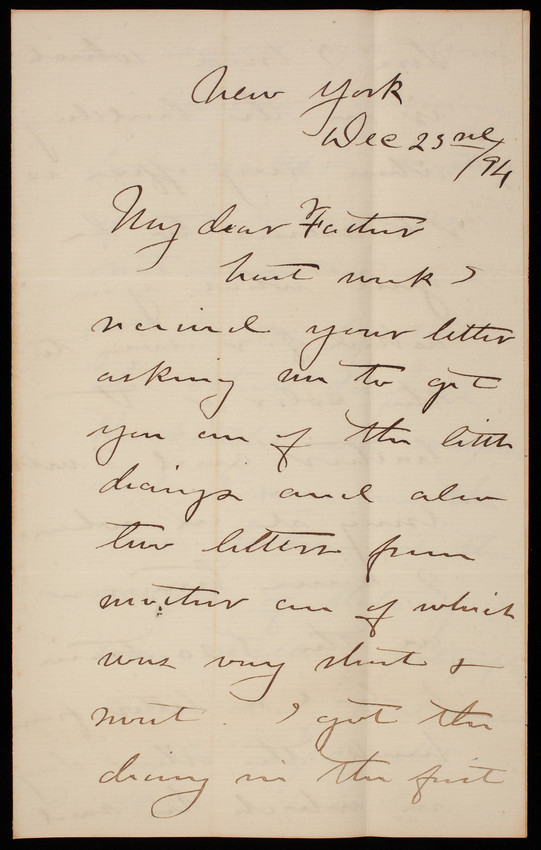 New York
Dec 23rd/94
My dear Father
Last week I
received your letter
asking me to get
you one of the little
diarys and also
two letters from
mother one of which
was very short &
sweet. I got the
diary in the first